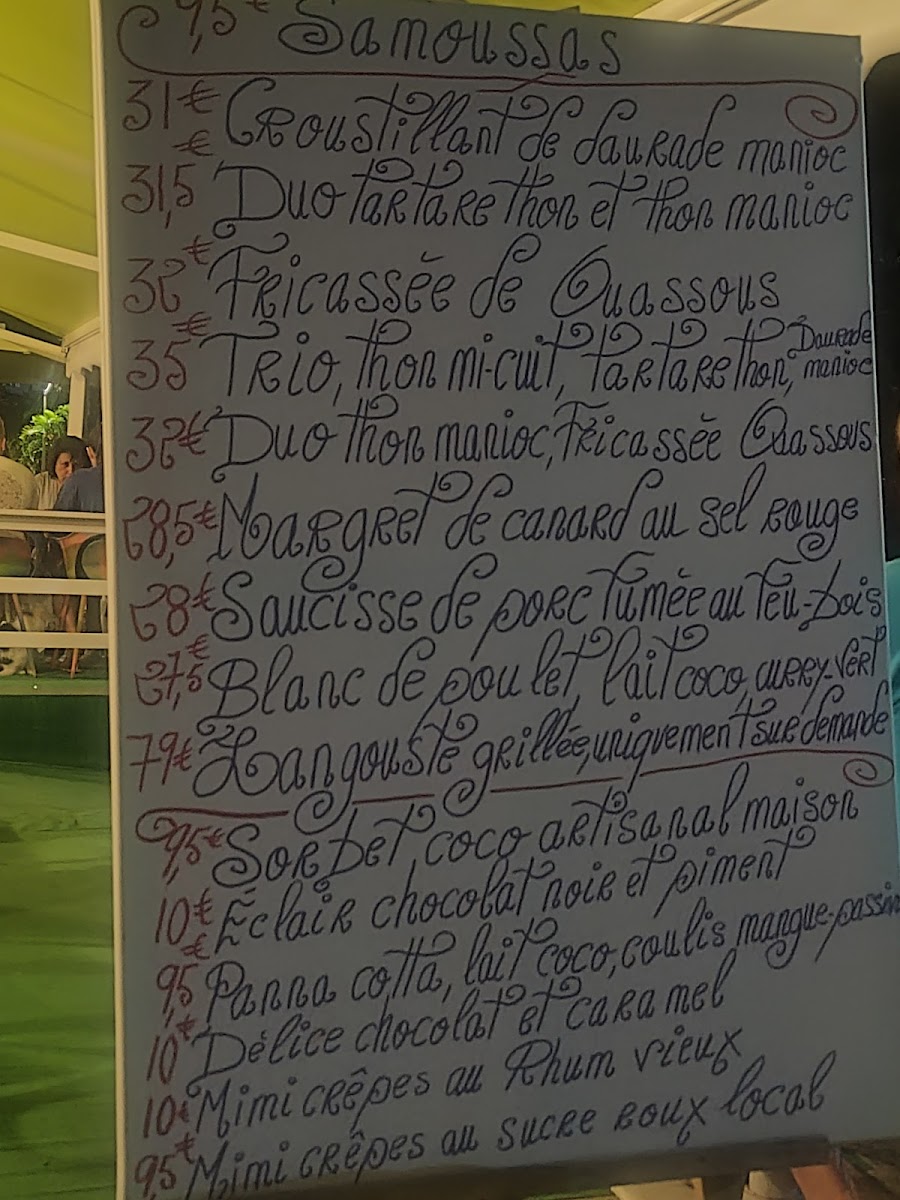 9,5€ Samoussas
31€ Croustillant de daurade manioc
31,5€ Duo tartare thon et thon manioc
32€ Fricassée de Ouassous
35€ Trio, thon mi-cuit, tartare thon, Daurade manioc
32€ Duo thon manioc, Fricassée Ouassous
28,5€ Margret de canard au sel rouge
28€ Saucisse de porc fumée au feu-bois
27,5€ Blanc de poulet, lait coco, curry-vert
79€ Langouste grillée, uniquement sur demande
9,5€ Sorbet, coco artisanal maison
10€ Éclair chocolat noir et piment
9,5€ Panna cotta, lait coco, coulis mangue-passion
10€ Délice chocolat et caramel
10€ Mimi crêpes au Rhum vieux
9,5€ Mimi crêpes au sucre roux local